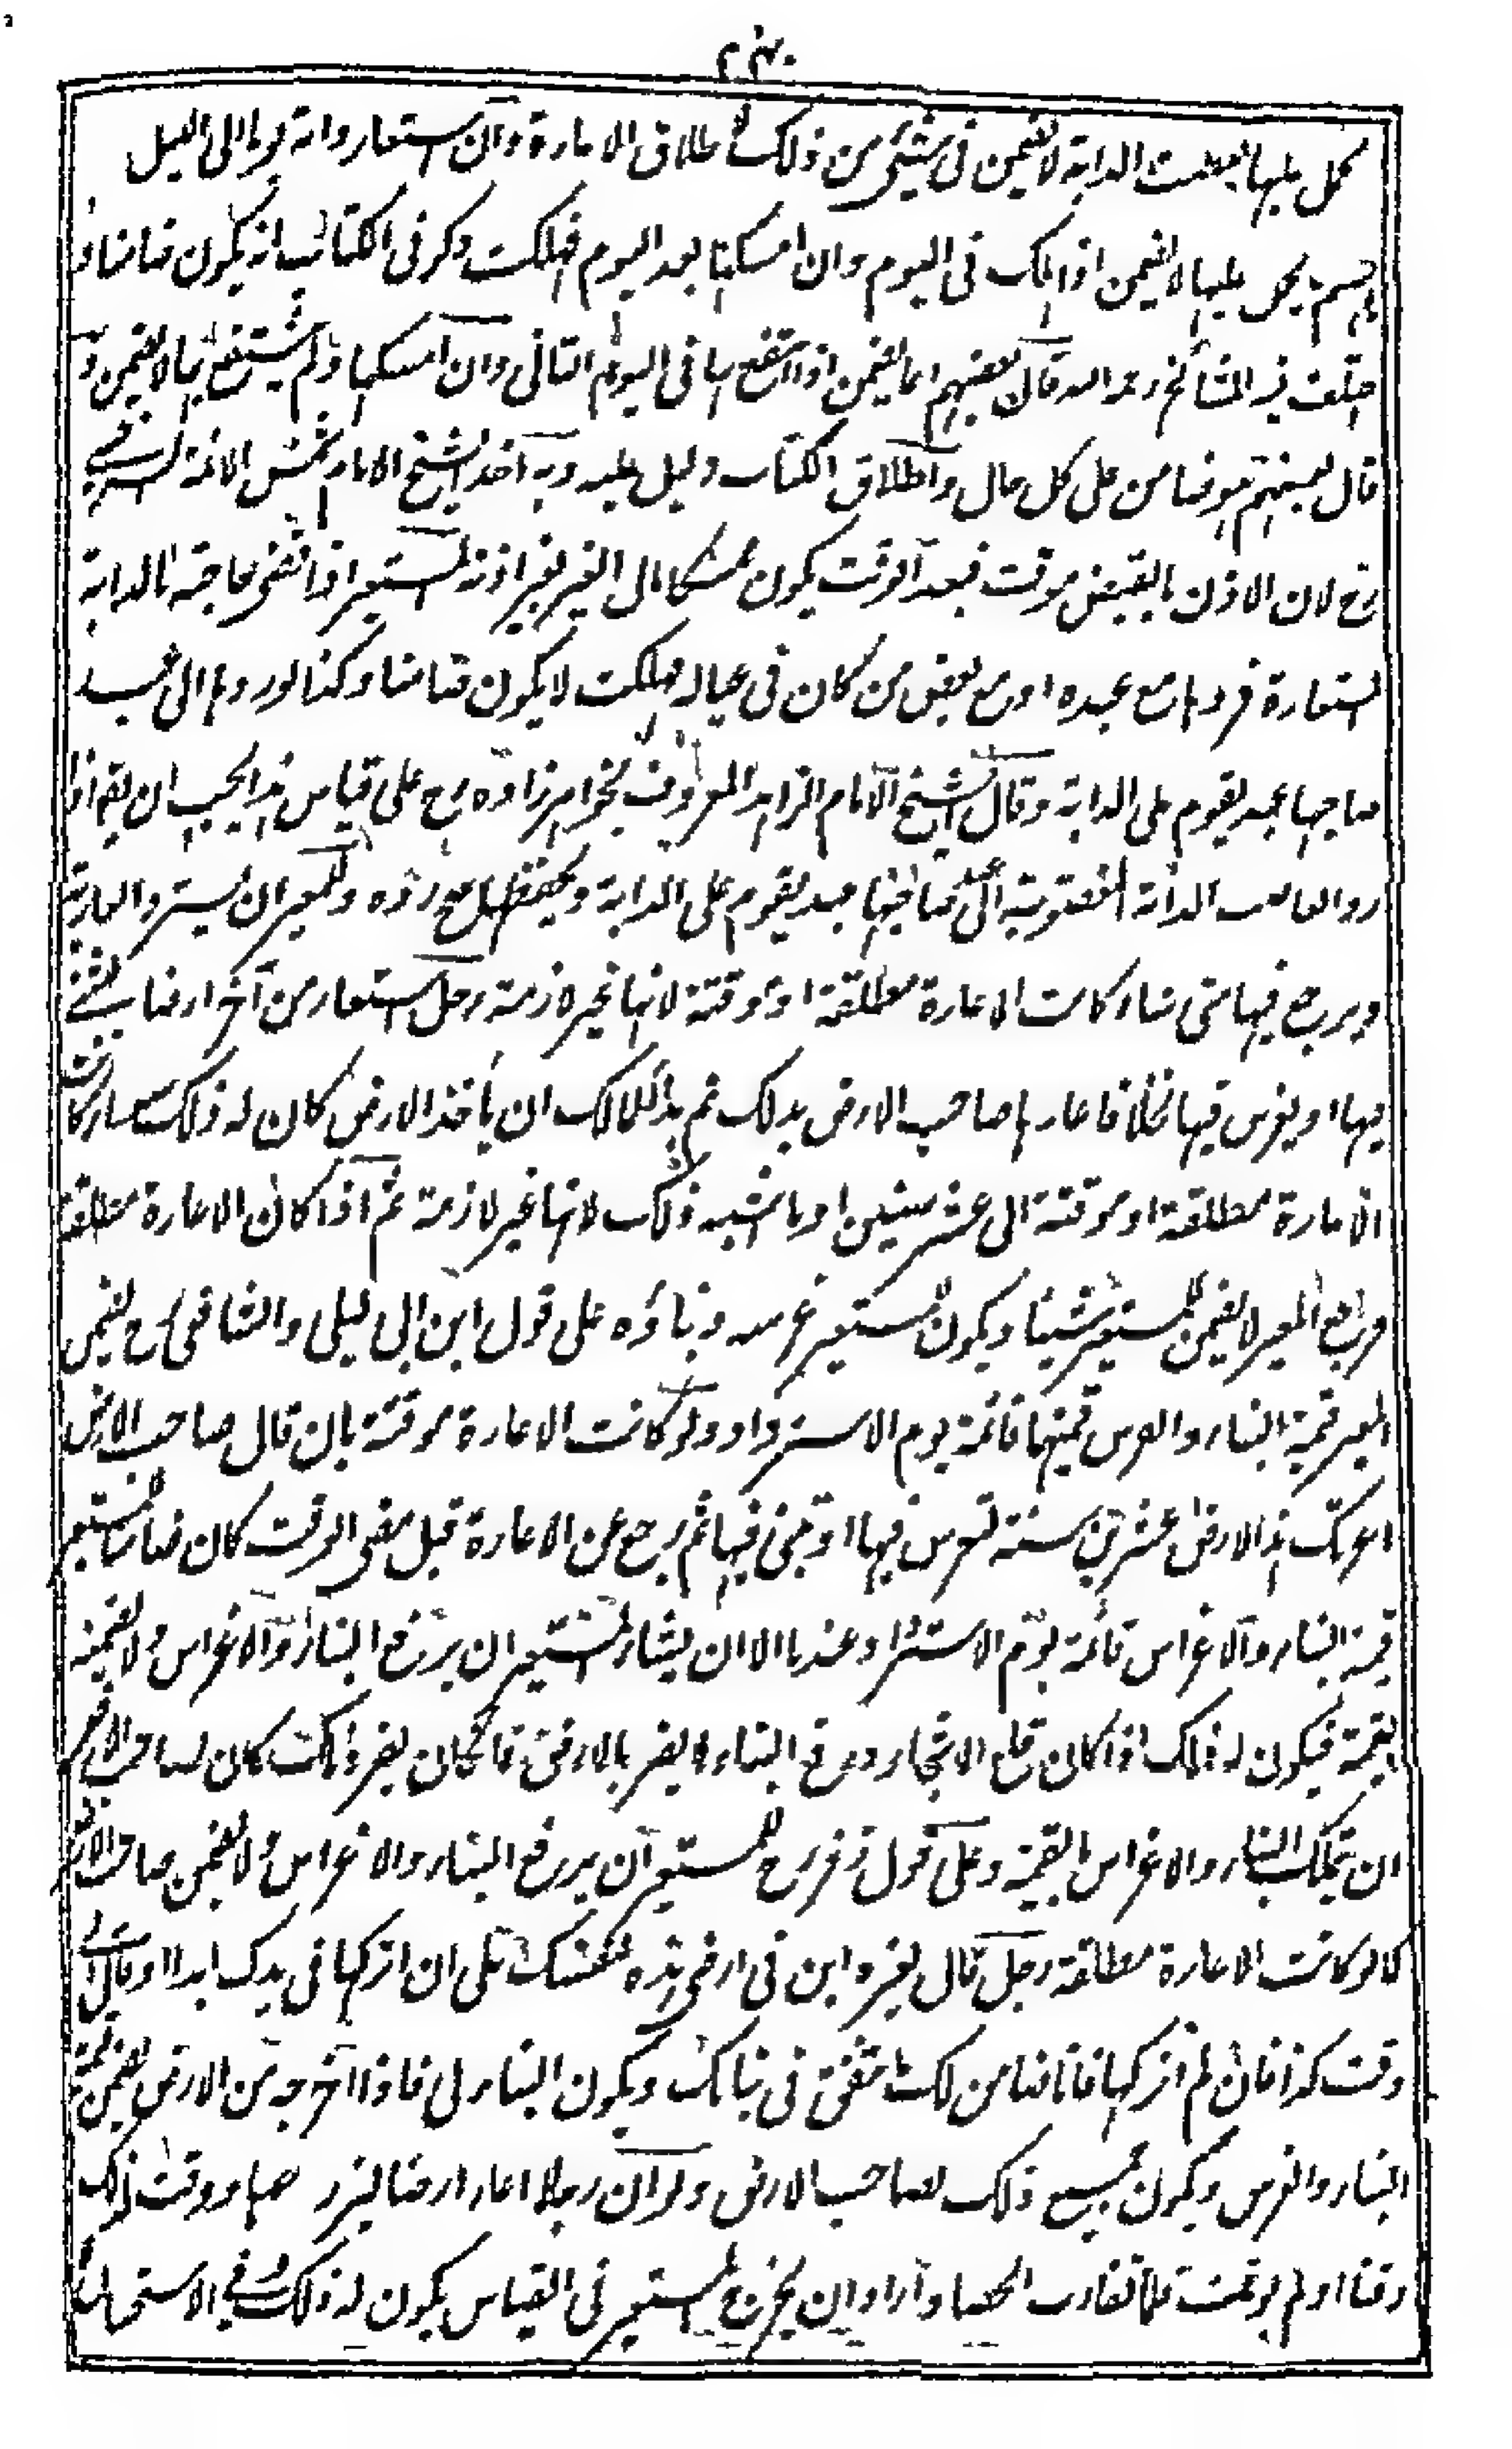 يحمل عليها فعطبت الدابة لا يضمن في شيء من ذلك لاطلاق الاعارة وان استعار دابة يوما الى الليل
ولم يسم ما يحمل عليها لا يضمن اذا هلك في اليوم وان امسكها بعد اليوم فهلكت ذكر في الكتاب انه يكون ضامنا وا
ختلف فيه المشائخ رحمهم الله قال بعضهم انما يضمن اذا انتفع بها في اليوم الثاني وان امسكها ولم ينتفع بها لا يضمن و
قال بعضهم هو ضامن على كل حال واطلاق الكتاب دليل عليه وبه اخذ الشيخ الامام شمس الائمة السرخسي
رح لان الاذن بالقبض موقت فبعد الوقت يكون ممسكا مال الغير بغير اذنه المستعير اذا قضى حاجته بالدابة
المستعارة فردها مع عبده او مع بعض من كان في عياله فهلكت لا يكون ضامنا وكذا لو ردها الى عبد
صاحبها عبد يقوم على الدابة وقال الشيخ الامام الزاهد المعروف بخواهرزاده رح على قياس هذا يجب ان يقه اذا
رد الغاصب الدابة المغصوبة الى صاحبها عبد يقوم على الدابة ويحفظها صح رده وللمعير ان يسترد العارية
ويرجع فيها متى شاء كانت الاعارة مطلقة او موقتة لانها غير لازمة رجل استعار من آخر ارضا يبني
فيها او يغرس فيها نخلا فاعارها صاحب الارض بذلك ثم بدا للمالك ان يأخذ الارض كان له ذلك سواء كانت
الاعارة مطلقة او موقتة الى عشر سنين او ما اشبه ذلك لانها غير لازمة ثم اذا كان الاعارة مطلقة
فرجع المعير لا يضمن للمستعير شيئا ويكون للمستعير غرسه وبناؤه على قول ابن ابي ليلى والشافعي رح يضمن
المعير قيمة البناء والغرس قيمتها قائمة يوم الاسترداد ولو كانت الاعارة موقتة بان قال صاحب الارض
اعرتك هذا الارض عشرين سنة لتغرس فيها او تبني فيها ثم رجع عن الاعارة قبل مضي الوقت كان ضامنا للمستعير
قيمة البناء والاغراس قائمة يوم الاسترداد عندنا الا ان يشاء المستعير ان يرفع البناء والاغراس ولا يضمنه
القيمة فيكون له ذلك اذا كان قلع الاشجار ورفع البناء لا يضر بالارض فان كان يضر ذلك كان لصاحب الارض
ان يتملك البناء والاغراس بالقيمة وعلى قول زفر رح للمستعير ان يرفع البناء والاغراس ولا يضمن صاحب الارض
كما لو كانت الاعارة مطلقة رجل قال لغيره ابن في ارضي هذه لنفسك على ان اتركها في يدك ابدا او قال الى
وقت كذا فان لم اتركها فانا ضامن لك ما تنفق في بنائك ويكون البناء لي فاذا اخرجه من الارض يضمن قيمة
البناء والغرس ويكون جميع ذلك لصاحب الارض ولو ان رجلا اعار ارضا ليزرعها ووقت لذلك
وقتا او لم يوقت فلما تقارب الحصاد اراد ان يخرج المستعير في القياس يكون له ذلك وفي الاستحسان